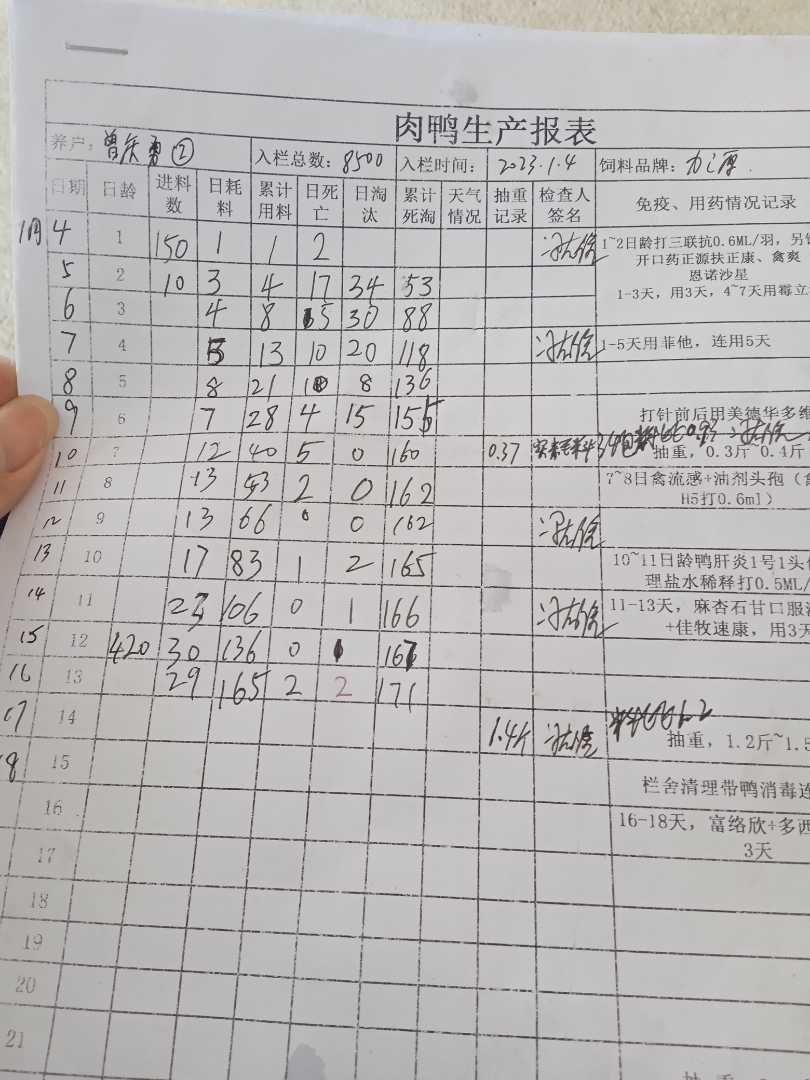 肉鸭生产报表
养户: 曾庆勇② 入栏总数: 8500 入栏时间: 2023.1.4 饲料品牌:
日期 日龄 进料数 日耗料 累计用料 日死亡 日淘汰 累计死淘 天气情况 抽重记录 检查人签名 免疫、用药情况记录
1月4 1 150 1 1 2 1~2日龄打三联抗0.6ML/羽，另
开口药正源扶正康、禽爽
恩诺沙星
5 2 10 3 4 17 34 53
1-3天，用3天，4~7天用霉立
6 3 4 8 5 30 88
7 4 5 13 10 20 118 1-5天用菲他，连用5天
8 5 8 21 10 8 136
9 6 7 28 4 15 155 打针前后用美德华多维
10 7 12 40 5 0 160 0.37 抽重，0.3斤~0.4斤
11 8 13 53 2 0 162 7~8日禽流感+油剂头孢（
H5打0.6ml）
12 9 13 66 0 0 162
13 10 17 83 1 2 165 10~11日龄鸭肝炎1号1头
理盐水稀释打0.5ML/
14 11 23 106 0 1 166 11-13天，麻杏石甘口服
+佳牧速康，用3天
15 12 420 30 136 0 1 167
16 13 29 165 2 2 171
17 14 1.4斤 抽重，1.2斤~1.5
18 15 栏舍清理带鸭消毒连
16 16-18天，富络欣+多西
3天
17
18
19
20
21
抽重